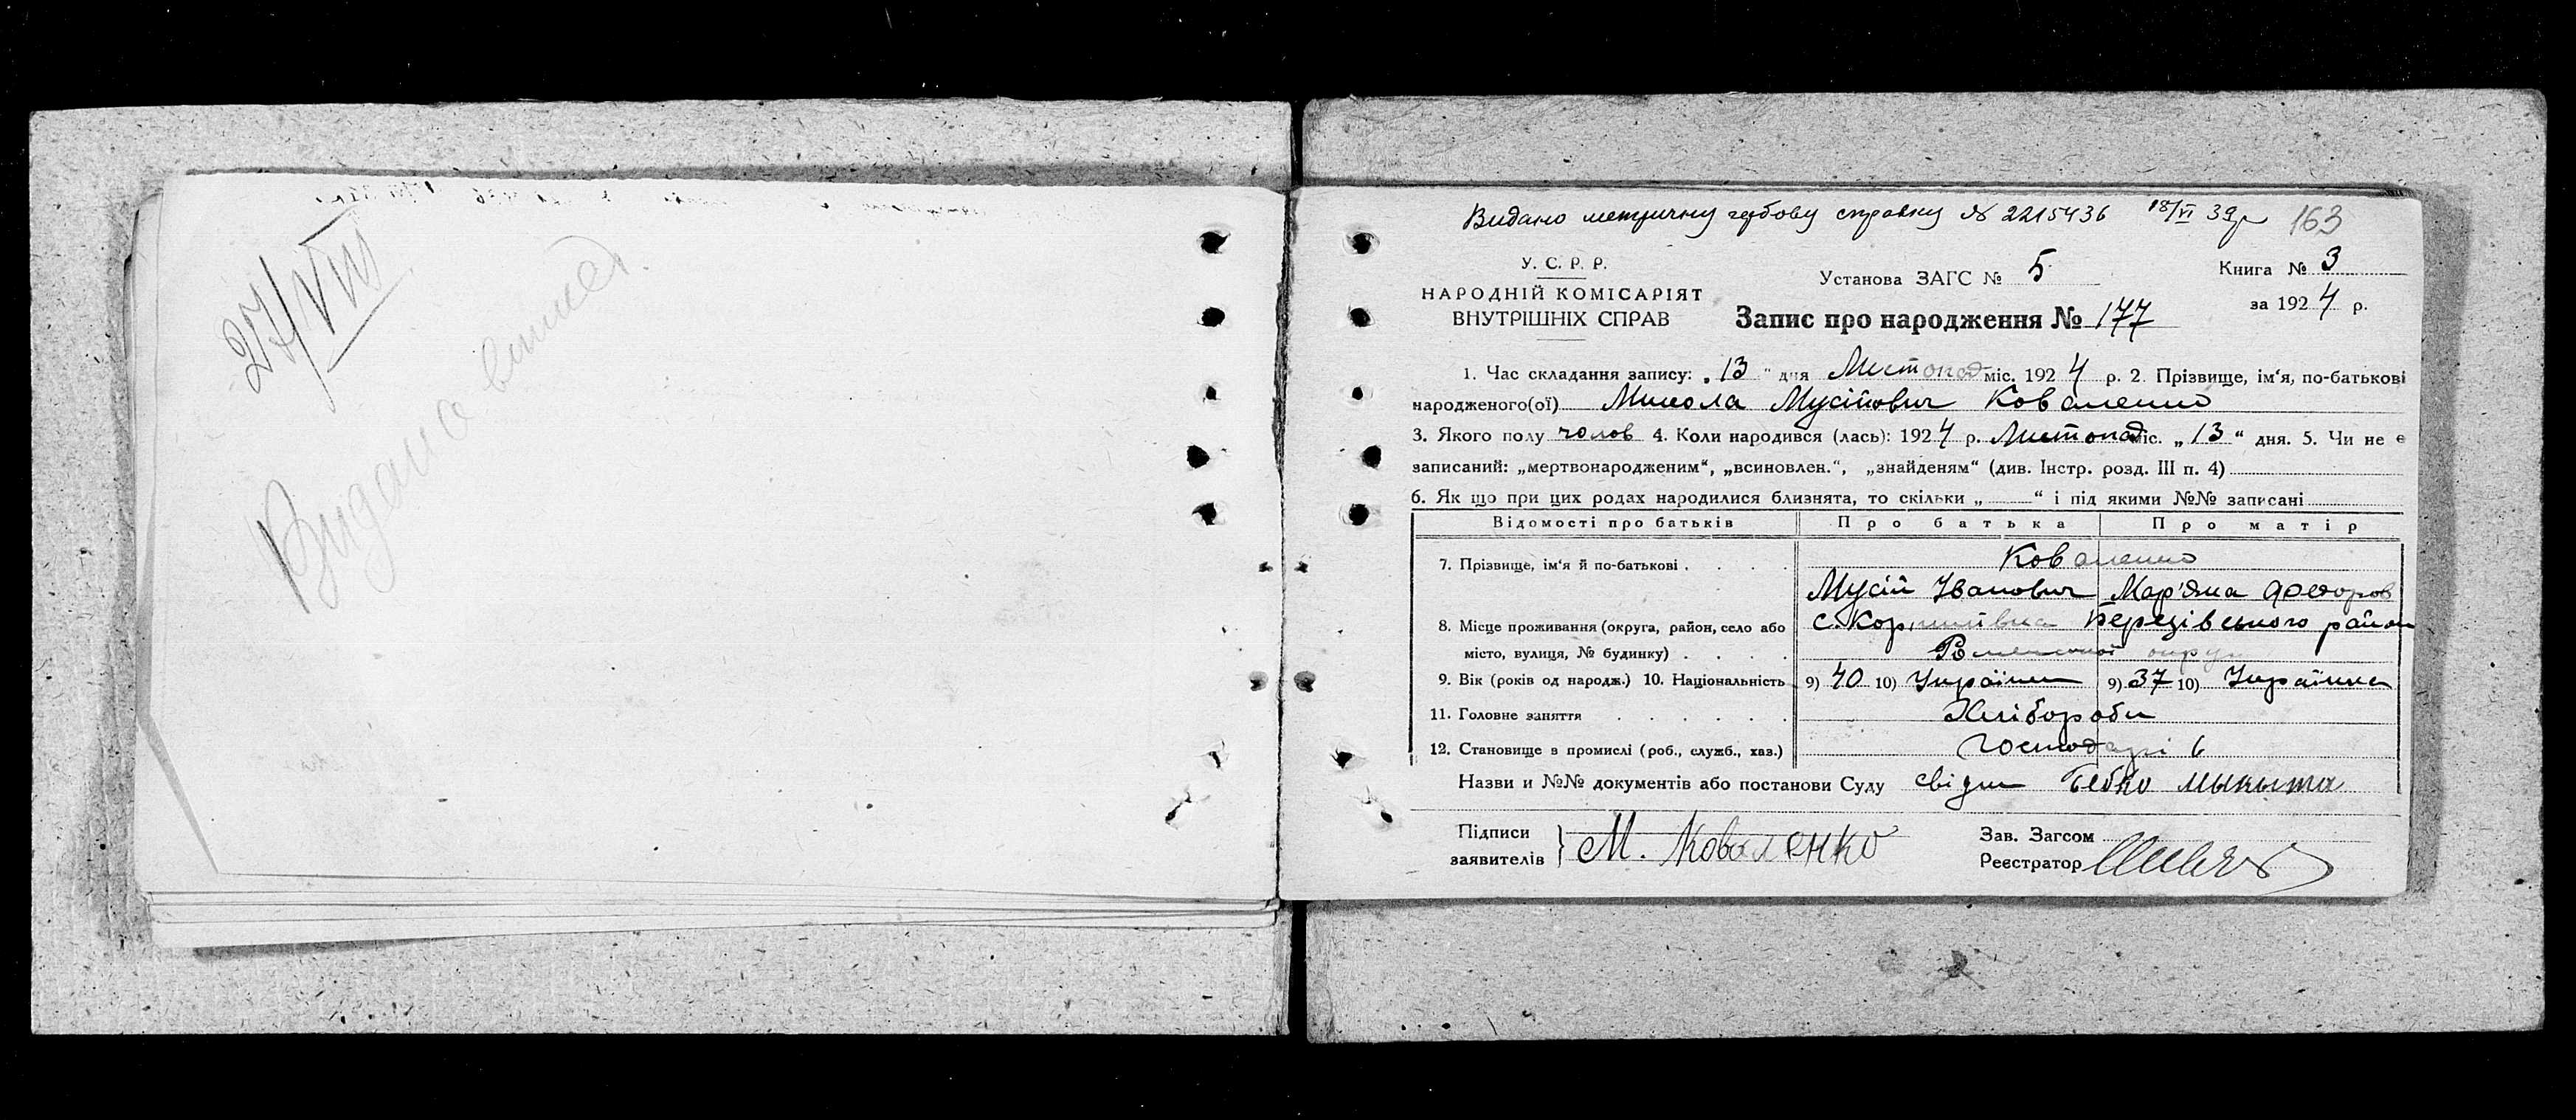 27/VIII
Видано
Видано метричну гербову справку № 2215436 18/VI 39 р 163
У. С. Р. Р.
НАРОДНІЙ КОМІСАРІЯТ
ВНУТРІШНІХ СПРАВ
Установа ЗАГС № 5
Книга № 3
за 1924 р.
Запис про народження № 177
1. Час складання запису: „13" дня Листопад міс. 1924 р. 2. Прізвище, ім'я, по-батькові
народженого(ої) Микола Мусійович Коваленко
3. Якого полу чолов 4. Коли народився (лась): 1924 р. Листопад міс. „13" дня. 5. Чи не є
записаний: „мертвонародженим", „всиновлен.", „знайденям" (див. Інстр. розд. III п. 4)
6. Як що при цих родах народилися близнята, то скільки „ " і під якими №№ записані
Відомості про батьків Про батька Про матір
7. Прізвище, ім'я й по-батькові . . . . Коваленко
Мусій Іванович Мар'яна Федоров
8. Місце проживання (округа, район, село або с. Березівського район
місто, вулиця, № будинку) . . . . округ
9. Вік (років од народж.) 10. Національність 9) 40 10) Українець 9) 37 10) Українка
11. Головне заняття . . . . . . Хлібороби
12. Становище в промислі (роб., служб., хаз.) Господарі
Назви и №№ документів або постанови Суду свідки Бебко Мыкыта
Підписи
заявителів } М. Коваленко
Зав. Загсом
Реєстратор